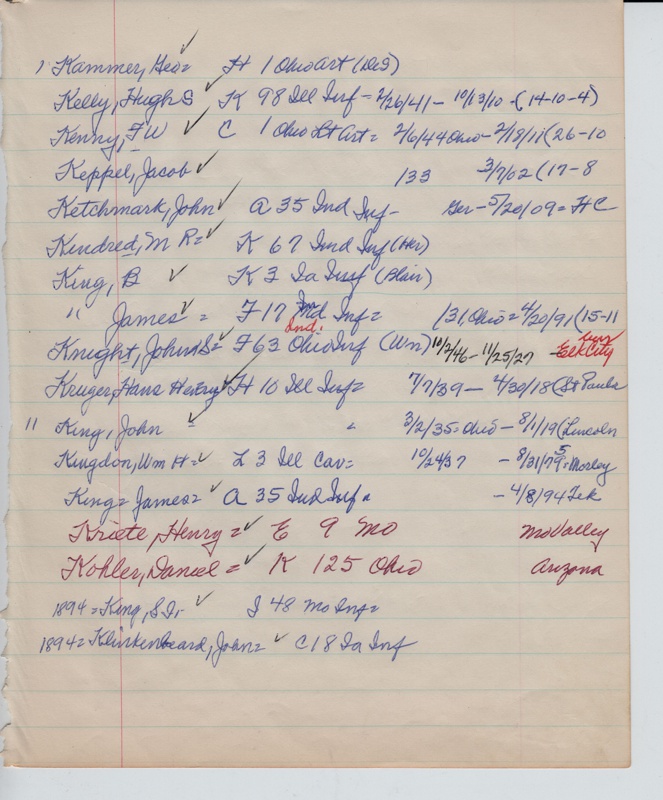 1 Kammer, Geo= H 1 Ohio Art (DeS)
Kelly, Hugh S K 98 Ill Inf = 2/26/41 - 10/13/10 - (14-10-4)
Kenny, F W C 1 Ohio Lt Art = 2/6/44 Ohio - 2/18/11 (26-10
Keppel, Jacob 133 3/7/02 (17-8
Ketchmark, John A 35 Ind Inf - Ger - 5/20/09 = H C
Kindred, M R= K 67 Ind Inf (Her)
King, B K 3 Ia Inf (Blair)
" James = F 17 Ind Inf = (31, Ohio = 4/20/91 (15-11
Ind.
Knight, John S= F 63 Ohio Inf (Wn) 10/2/46 - 11/25/27 - Elk City
Kruger, Hans Henry H 10 Ill Inf= 7/7/39 - 4/30/18 (St Pauls
11 King, John = " 3/2/35 = Ohio - 8/1/19 (Lincoln
Kingdon, Wm H= L 3 Ill Cav= 10/24/37 - 8/31/795=Morley
King= James= A 35 Ind Inf = - 4/8/94 Tek
Kriete, Henry = E 9 Mo MoValley
Kohler, Daniel = K 125 Ohio Arizona
1894 = King, S D, I 48 Mo Inf=
1894 = Klinkenbeard, John= C 18 Ia Inf